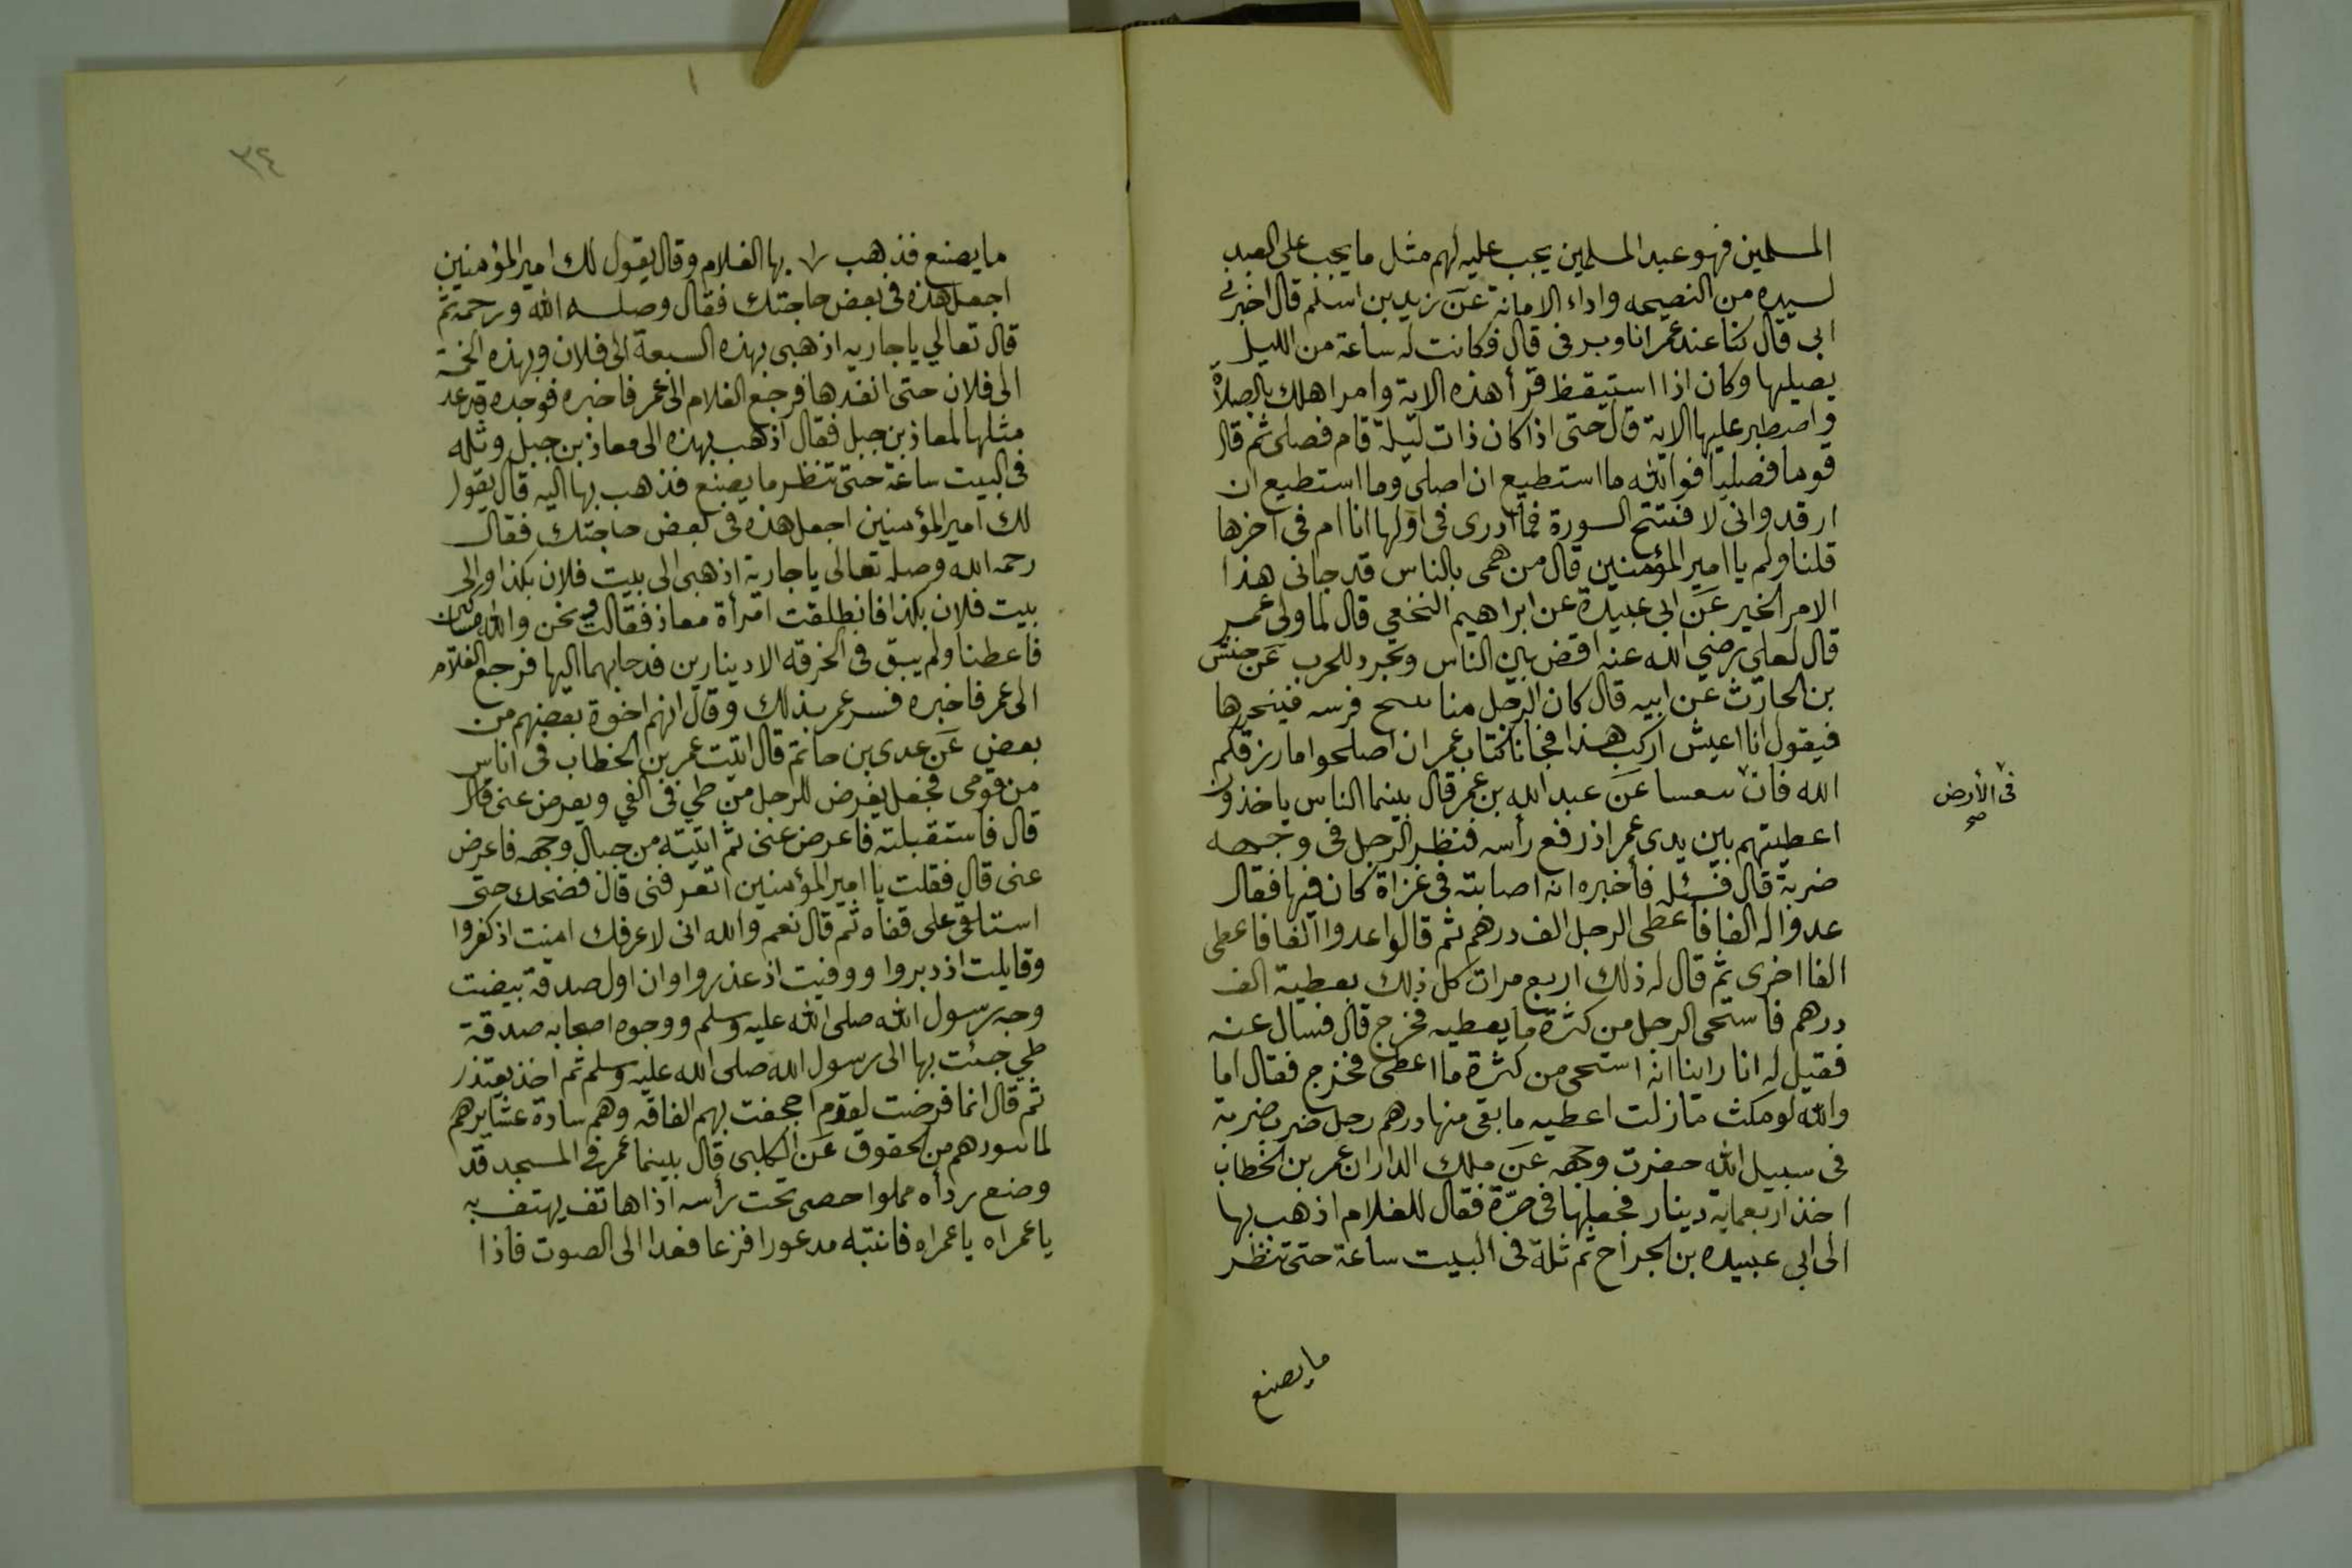 المسلمين فهو عبد المسلمين يجب عليه لهم مثل ما يجب على العبد
لسيده من النصيحه واداء الامانة عن زيد بن اسلم قال اخبرني
ابى قال كنا عند عمر انا ويرفى قال فكانت له ساعة من الليل
يصليها وكان اذا استيقظ قرأ هذه الاية وامر اهلك بالصلاة
واصطبر عليها الاية قال حتى اذا كان ذات ليلة قام فصلى ثم قال
قوما فصليا فوالله ما استطيع ان اصلى وما استطيع ان
ارقد وانى لا فتتح السورة فما ادرى فى اولها انا ام فى آخرها
قلنا ولم يا امير المؤمنين قال من همى بالناس قد جانى هذا
الامر الخير عن ابى عبيدة عن ابراهيم النخعي قال لما ولى عمر
قال لعلي رضي الله عنه اقض بين الناس وتجرد للحرب عن حنش
بن الحارث عن ابيه قال كان الرجل منا فرسه فينحرها
فيقول انا اعيش اركب هذا فجانا كتاب عمر ان اصلحوا ما رزقكم
الله فان عن عبد الله بن عمر قال بينما الناس ياخذون
فى الأرض صح
اعطيتهم بين يدى عمر اذ رفع رأسه فنظر الرجل فى وجهه
ضربة قال فسئله فأخبره انه اصابته فى غزاة كان فيها فقال
عدوا له الفا فأعطى الرجل الف درهم ثم قالوا عدوا الفا فاعطى
الفا اخرى ثم قال له ذلك اربع مرات كل ذلك يعطيه الف
درهم فاستحى الرجل من كثرة ما يعطيه فخرج قال فسال عنه
فقيل له انا راينا انه استحى من كثرة ما اعطى فخرج فقال اما
والله لو مكث ما زلت اعطيه ما بقى منها درهم رجل ضرب ضربة
فى سبيل الله حضرت وجهه عن ملك الدار ان عمر بن الخطاب
اخذ اربعماية دينار فجعلها فى صرة فقال للغلام اذهب بها
الى ابى عبيده بن الجراح ثم تله فى البيت ساعة حتى تنظر
ما يصنع
٣٤
ما يصنع فذهب بها الغلام وقال يقول لك امير المؤمنين
اجعل هذه فى بعض حاجتك فقال وصله الله ورحمه ثم
قال تعالي يا جاريه اذهبى بهذه السبعة الى فلان وبهذه الخمسة
الى فلان حتى انفدها فرجع الغلام الى عمر فاخبره فوجده قد عد
مثلها لمعاذ بن جبل فقال اذهب بهذه الى معاذ بن جبل وتله
فى البيت ساعة حتى تنظر ما يصنع فذهب بها اليه قال يقول
لك امير المؤمنين اجعل هذه فى بعض حاجتك فقال
رحمه الله وصله تعالى يا جارية اذهبى الى بيت فلان بكذا والى
بيت فلان بكذا فانطلقت امرأة معاذ فقالت ونحن والله مساكين
فاعطنا ولم يبق فى الخرقه الا دينارين فدحا بهما اليها فرجع الغلام
الى عمر فاخبره فسر عمر بذلك وقال انهم اخوة بعضهم من
بعض عن عدى بن حاتم قال اتيت عمر بن الخطاب فى اناس
من قومى فجعل يفرض للرجل من طي فى الفي ويعرض عنى قال
قال فاستقبلته فاعرض عنى ثم اتيته من حيال وجهه فاعرض
عنى قال فقلت يا امير المؤمنين اتعرفنى قال فضحك حتى
استلقى على قفاه ثم قال نعم والله انى لاعرفك امنت اذ كفروا
وقابلت اذ دبروا ووفيت اذ غدروا وان اول صدقة بيضت
وجه رسول الله صلى الله عليه وسلم ووجوه اصحابه صدقة
طي جئت بها الى رسول الله صلى الله عليه وسلم ثم اخذ يعتذر
ثم قال انما فرضت لقوم اجحفت بهم الفاقه وهم سادة عشايرهم
لما من الحقوق عن الكلبى قال بينما عمر فى المسجد قد
وضع رداه مملوا حصى تحت رأسه اذا هاتف يهتف به
يا عمراه يا عمراه فانتبه مدعورا فزعا فغدا الى الصوت فاذا